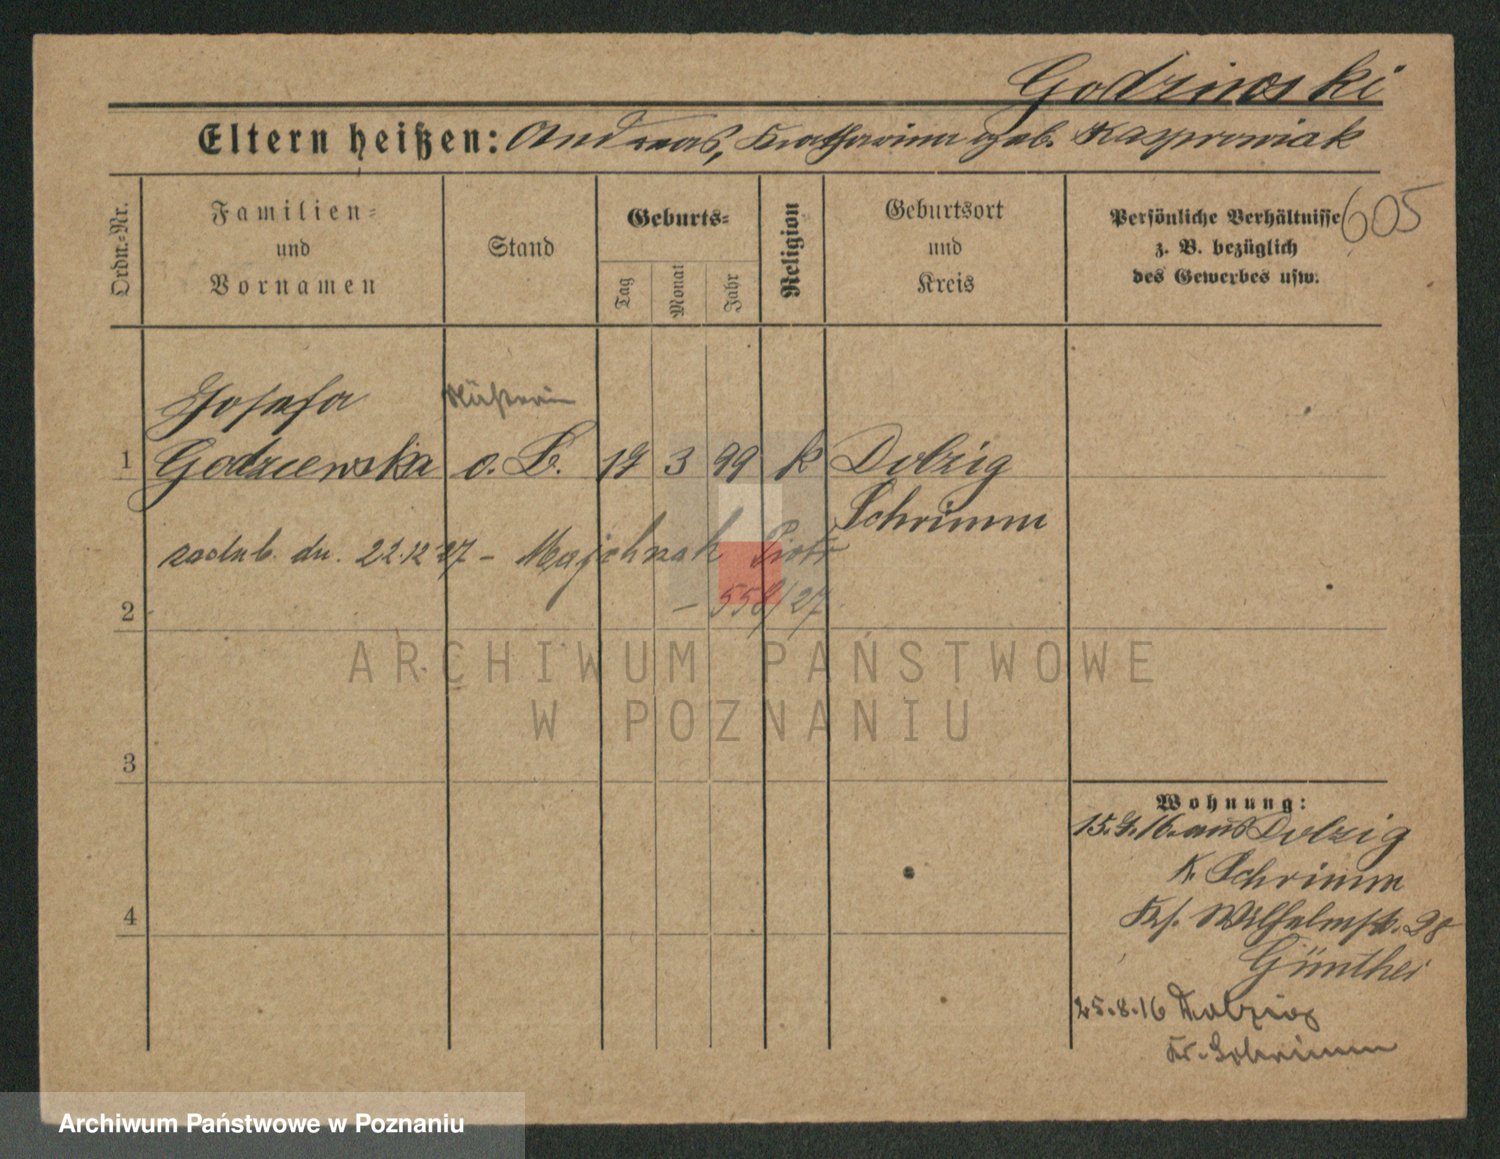 Godziewski
Eltern heißen: Andreas, Katharina geb. Kasprowiak
Ordn.-Nr.
Familien- und Vornamen
Stand
Geburts-
Tag
Monat
Jahr
Religion
Geburtsort und Kreis
Persönliche Verhältnisse z. B. bezüglich des Gewerbes usw.
605
Josefa
1 Godziewska o. B. 19 3 99 k Dolzig
Schrimm
zaślub. dn. 22.12.27 - Majchrzak Piotr
- 558/27
2
3
4
ARCHIWUM PAŃSTWOWE
W POZNANIU
Wohnung:
15.4.16. aus Dolzig
K. Schrimm
Wilhelmstr. 28
Günther
25.8.16 Dolzig
Kr. Schrimm
Archiwum Państwowe w Poznaniu